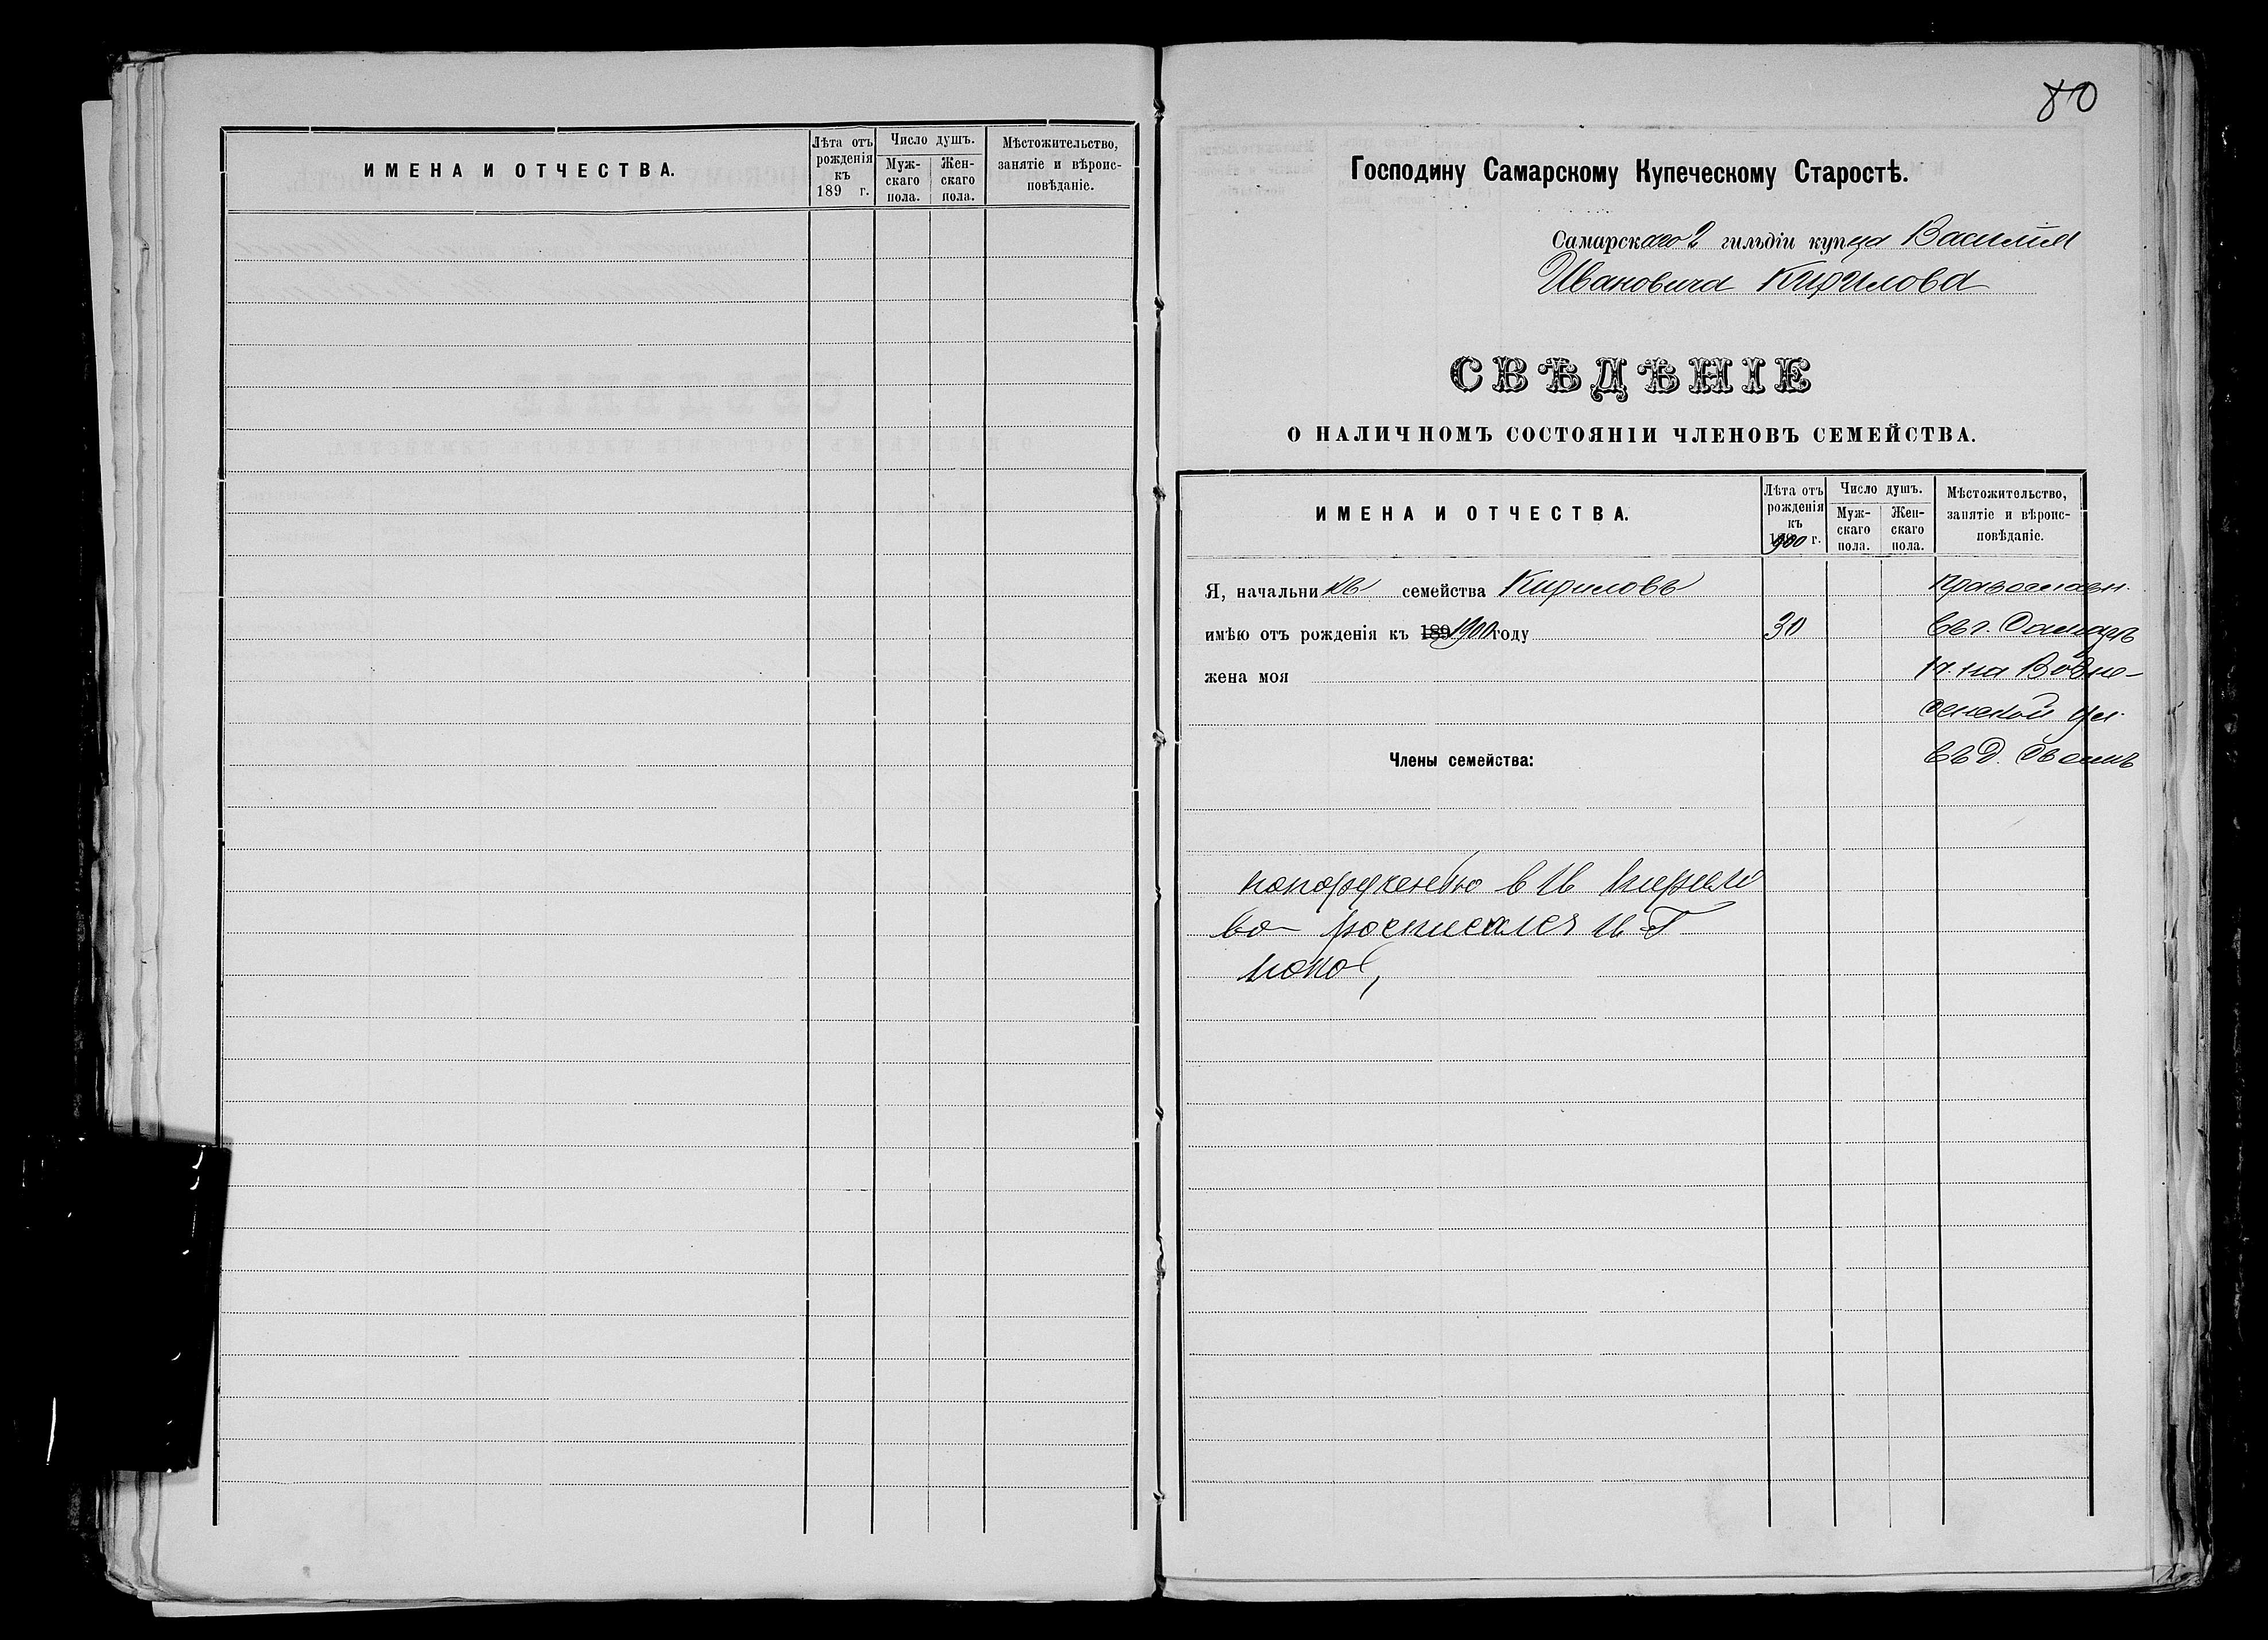 ИМЕНА И ОТЧЕСТВА.
Лѣта отъ рожденія къ 189 г.
Число душъ.
Мужскаго пола.
Женскаго пола.
Мѣстожительство, занятіе и вѣроисповѣданіе.
80
Господину Самарскому Купеческому Старостѣ.
Самарскаго 2 гильдіи купца Василія
Ивановича Кирилова
СВѢДѢНІЕ
О НАЛИЧНОМЪ СОСТОЯНІИ ЧЛЕНОВЪ СЕМЕЙСТВА.
ИМЕНА И ОТЧЕСТВА.
Лѣта отъ рожденія къ 1900 г.
Число душъ.
Мужскаго пола.
Женскаго пола.
Мѣстожительство, занятіе и вѣроисповѣданіе.
Я, начальникъ семейства Кириловъ православн.
имѣю отъ рожденія къ 189 1900 году 30 въ г. Самарѣ
жена моя на Возне-
сенской ул.
Члены семейства: въ д. своемъ
В И Кирило
ва росписался И Г